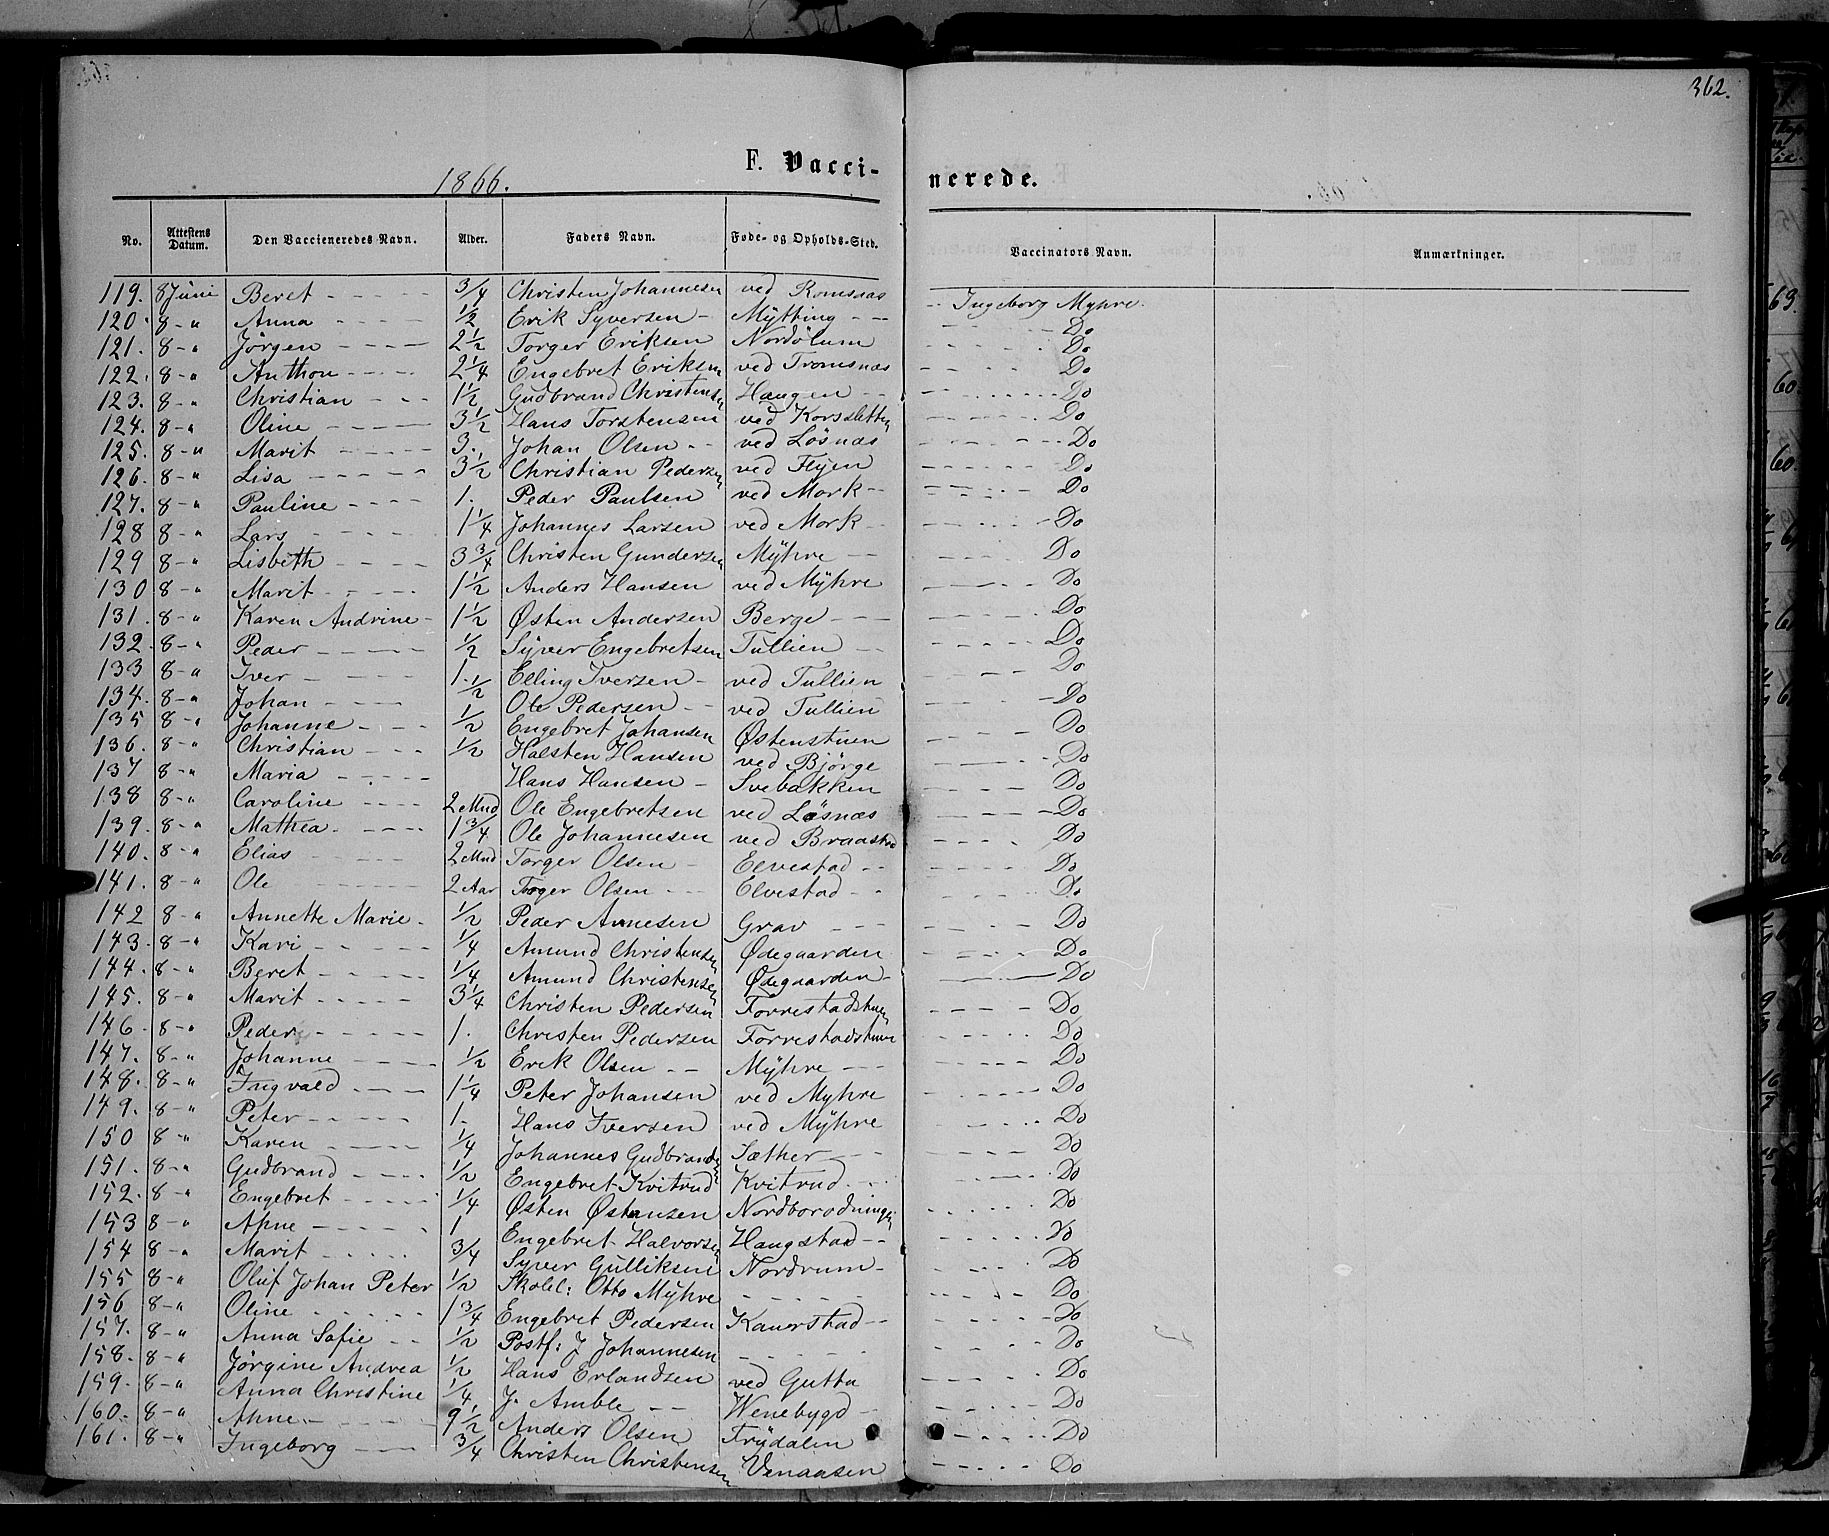 362.
1866.
F. Vacci-
nerede.
No. Attestens Datum. Den Vaccieneredes Navn. Alder. Faders Navn. Føde- og Opholds-Sted. Vaccinators Navn. Anmærkninger.
119. 8 Juni Beret - - - - - 3/4 Christen Johannesen ved Romsaas - - Ingeborg Myhre.
120. 8 - " Anna - - - - 1/2 Erik Syversen - Mÿtting - - - Do
121. 8 - " Jörgen - - - - 2 1/2 Torger Eriksen Nordölum Do
122. 8 - " Anthon - - - - 2 1/4 Engebret Eriksen ved Tromsnæs Do
123. 8 - " Christian - - - 1 1/2 Gudbrand Christensen Haugen - - Do
124. 8 - " Oline - - - - 3 1/2 Hans Torstensen ved Korssletten Do
125. 8 - " Marit - - - - 3. Johan Olsen - - ved Lösnæs Do
126. 8 - " Lisa - - - - 3 1/2 Christian Pedersen ved Flyen Do
127. 8 - " Pauline - - - - 1. Peder Paulsen ved Mork - - Do
128 8 - " Lars - - - - 1 1/4 Johannes Larsen ved Mork - Do
129 8 - " Lisbeth - - - - 3 3/4 Christen Gundersen Mÿhre - - Do
130 8 - " Marit - - - - 1 1/2 Anders Hansen ved Mÿhre Do
131. 8 - " Karen Andrine - 1 1/2 Østen Andersen Berge - - - Do
132. 8 - " Peder - - - - 1/2 Sÿver Engebretsen Tullien - - Do
133 8 - " Iver - - - - 1. Elling Iversen - ved Tullien Do
134. 8 - " Johan - - - 1/2 Ole Pedersen - - ved Tullien Do
135 8 - " Johanne - - - 1/2 Engebret Johansen Østenstuen Do
136. 8 - " Christian - - - 1/2 Halsten Hansen ved Björge Do
137 8 - " Maria - - - - Hans Hansen - Svebakken Do
138 8 - " Caroline - - - - 2 Mnd Ole Engebretsen ved Lösnæs Do
139. 8 - " Mathea - - - - 1 3/4 Ole Johannesen ved Braastad Do
140. 8 - " Elias - - - - 2 Mnd Torger Olsen - Elvestad - - Do
141. 8 - " Ole - - - - 2 Aar Toger Olsen - - - Elvestad - - Do
142 8 - " Annette Marie - 1/2 Peder Annesen Grav - - - Do
143. 8 - " Kari - - - - 1/4 Amund Christensen Ødegaarden Do
144. 8 - " Beret - - - - 1/4 Amund Christensen Ødegaarden - Do
145. 8 - " Marit - - - - 3 1/4 Christen Pedersen Forrestadstuen Do
146 - 8 - " Peder - - - - 1. Christen Pedersen Forrestadstuen Do
147. 8 - " Johanne - - - - 1/2 Erik Olsen - - Mÿhre - - - Do
148. 8 - " Ingvald - - - 1 1/4 Peter Johansen ved Myhre Do
149. 8 - " Peter - - - - 1. Hans Iversen ved Mÿhre Do
150 8 - " Karen - - - - 1/4 Johannes Gudbrandsen Sæther - - Do
151. 8 - " Gudbrand - - - - 1/2 Engebret Kvitrud Kvitrud - - Do
152. 8 - " Engebret - - - - 1/4 Østen Østensen Do
153 8 - " Ahne - - - - 1 Engebret Halvorsen Haugstad - - Do
154 8 - " Marit - - - - 3/4 Syver Gulliksen Nordrum - Do
155 8 - " Oluf Johan Peter 1/2 Skolel: Otto Mÿhre - - - - - Do
156 8 - " Oline - - - - 1 3/4 Engebret Pedersen Kauvstad - - Do
157. 8 - " Anna Sofie - - 1/2 Postf: J Johannesen - - - - - Do
158. 8 - " Jörgine Andrea 1/2 Hans Erlandsen ved Gutta Do
159. 8 - " Anna Christine 1/4 J. Amble - - Wenebygd - Do
160. 8 - " Ahne - - - - 9 1/2 Anders Olsen Frydalen Do
161. 8 - " Ingeborg - - - 3/4 Christen Christensen Venaasen Do